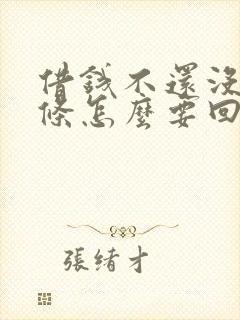 借錢不還沒
條怎麼要回
張緒才